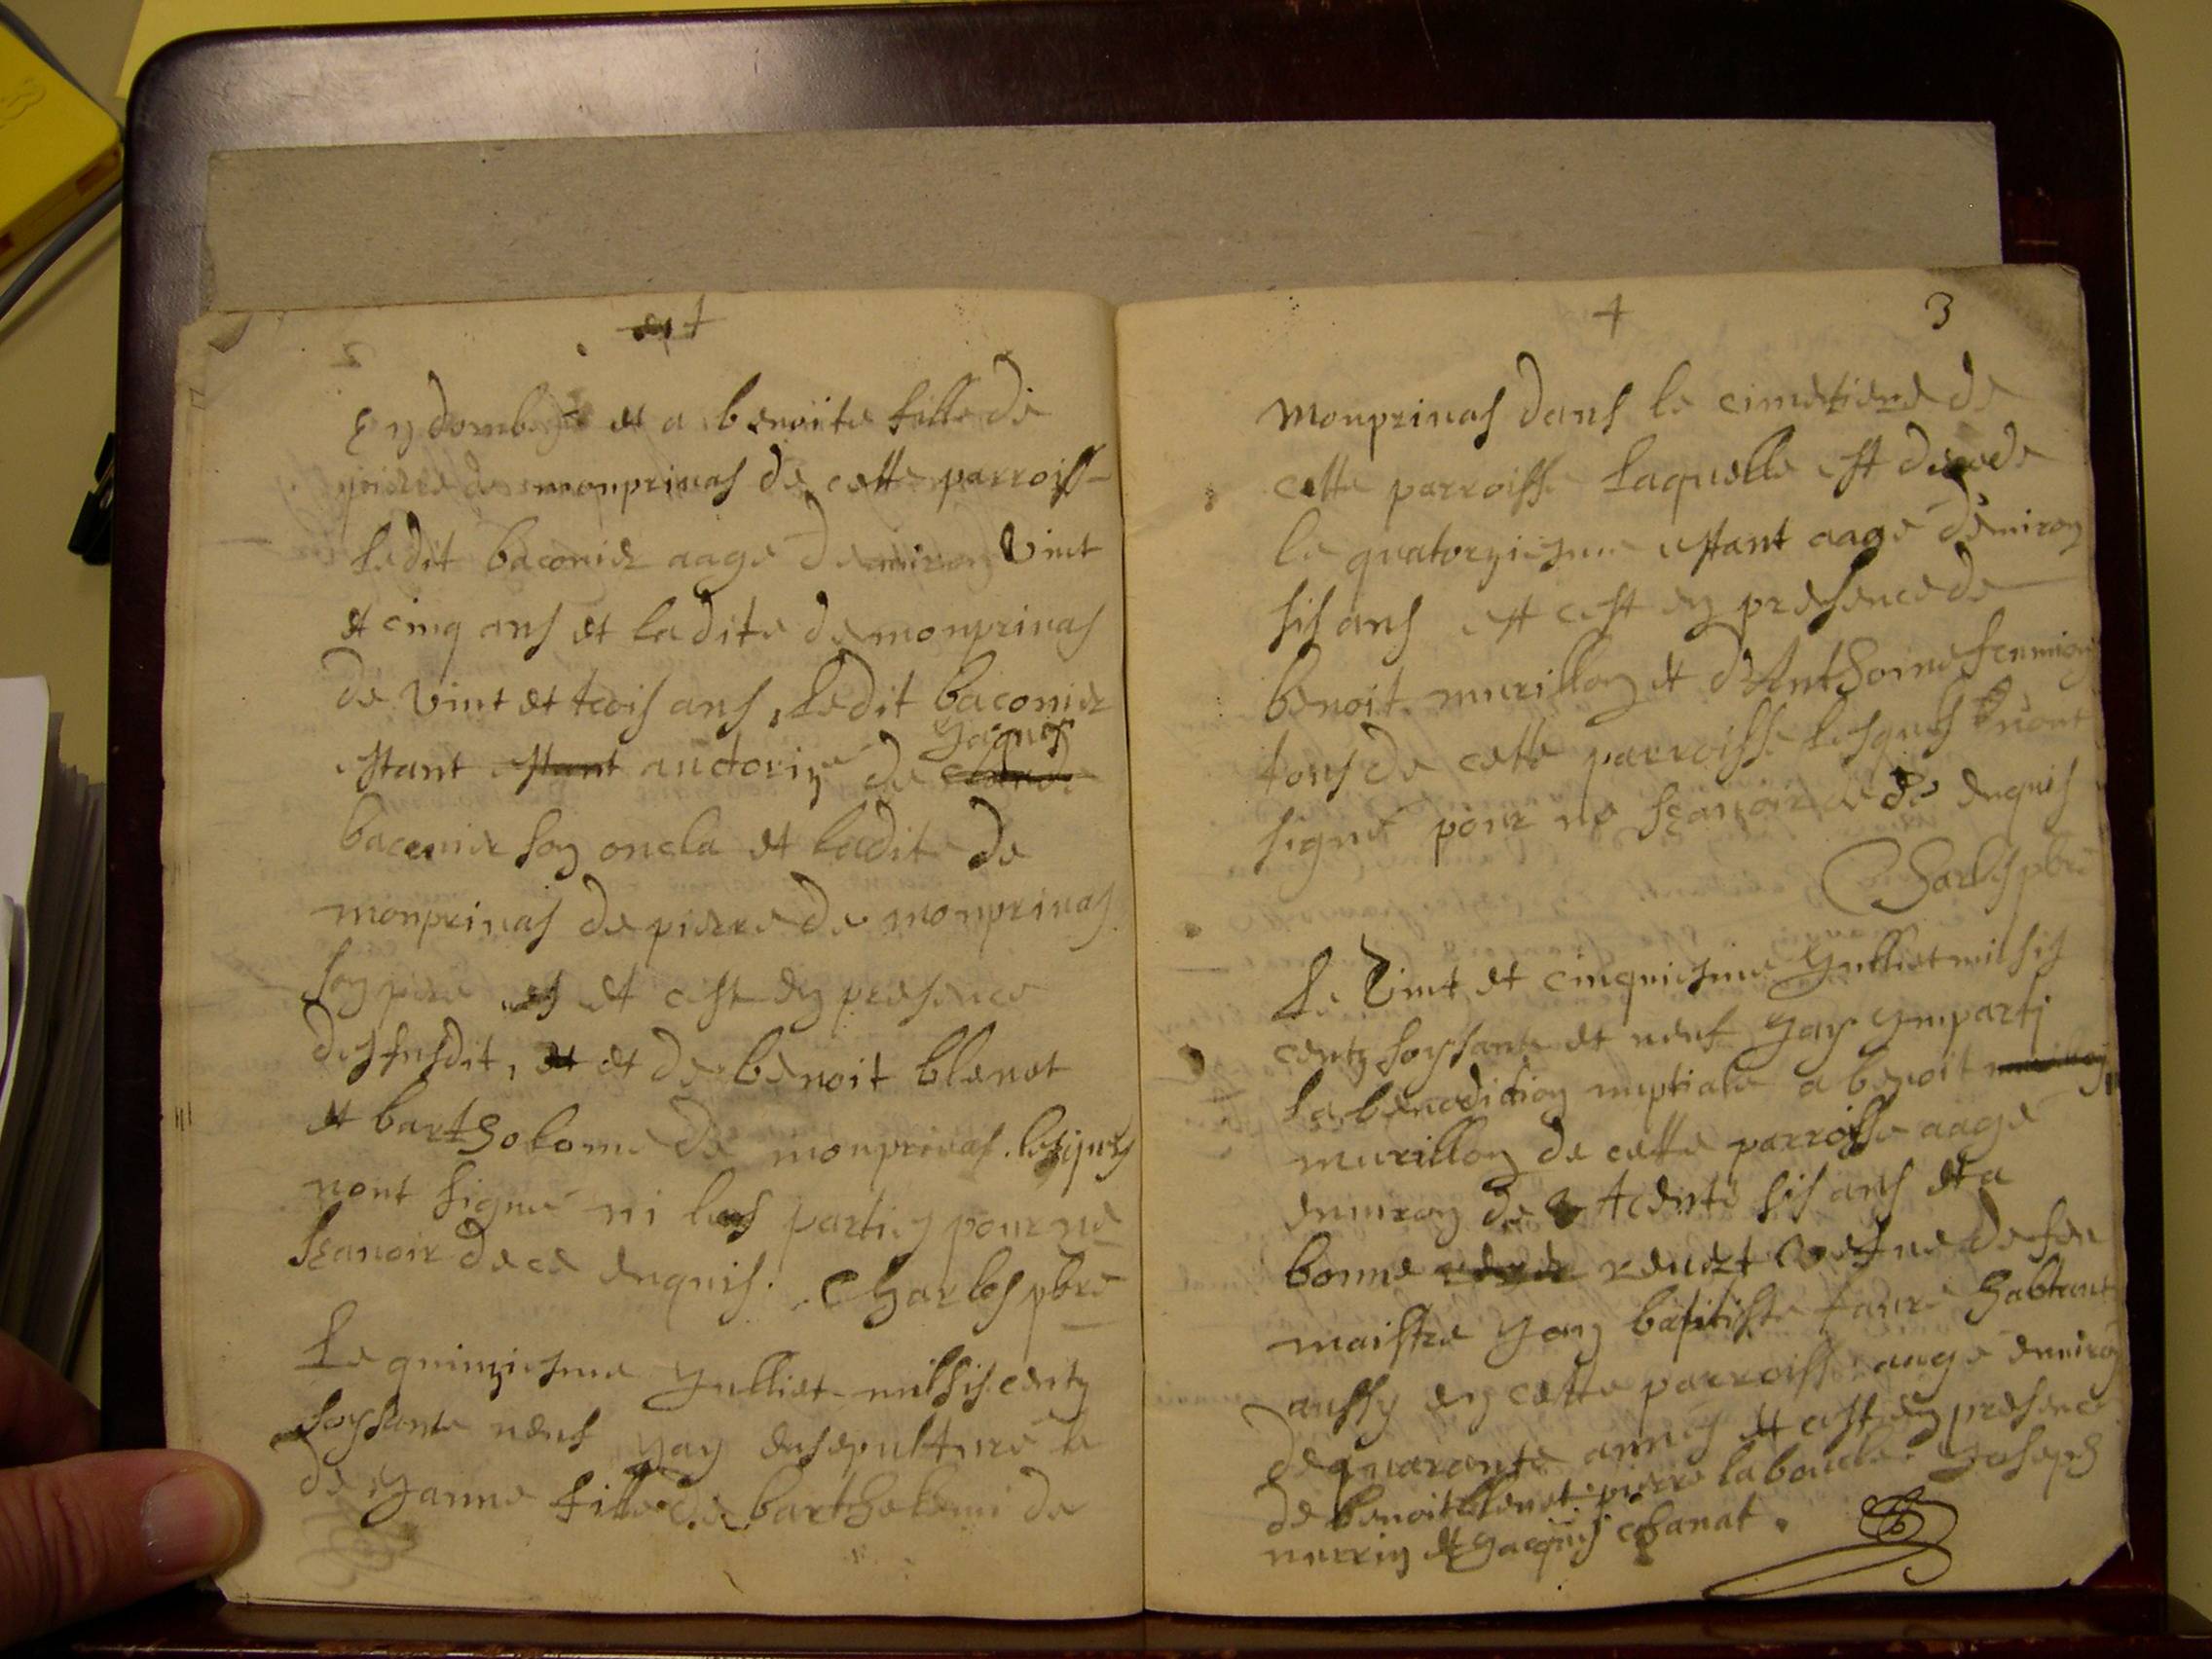 en dombes et a benoite fille de
pierre de monprivas de cette parroiss-
ledit baconier aage denviron vint
et cinq ans et ladite demonprivas
de vint et trois ans, ledit baconier
yaques
estant estant auctorizé de claude
baconier son oncla et ladite de
monprivas de pierre de monprivas
son pere et et cest en presence
dessusdit, et et de benoit blenet
et bartholome de monprivas. lesquels
nont signé ni les parties pour ne
scavoir de ce enquis. Charles pbre
Le quinziesme Yulliet mil sis centz
soyssante neuf yay ensepulturé le
de yanne fille de barthelemi de
+ 3
monprivas dans le cimetiere de
cette parroisse laquelle est decede
le quatorziesme estant aage denviron
sis ans et cest en presence de
benoit murillon et d'Anthoine
tous de cette parroisse lesquels nont
signé pour ne scavoir de ce enquis
Charles pbre
Le vint et cinquiesme Yulliet mil sis
centz soyssante et neuf yay ymparti
la benediction nuptiale a benoit
murillon de cette parroisse aagé
environ de trente sis ans et a
bonne revert vefve de feu
maistre yan babtiste faure habtant
aussy en cette parroisse aage environ
de quarante annes et cest en presence
de benoit blenet pierre laboucle. Yoseph
nerrin et yacques chanat.